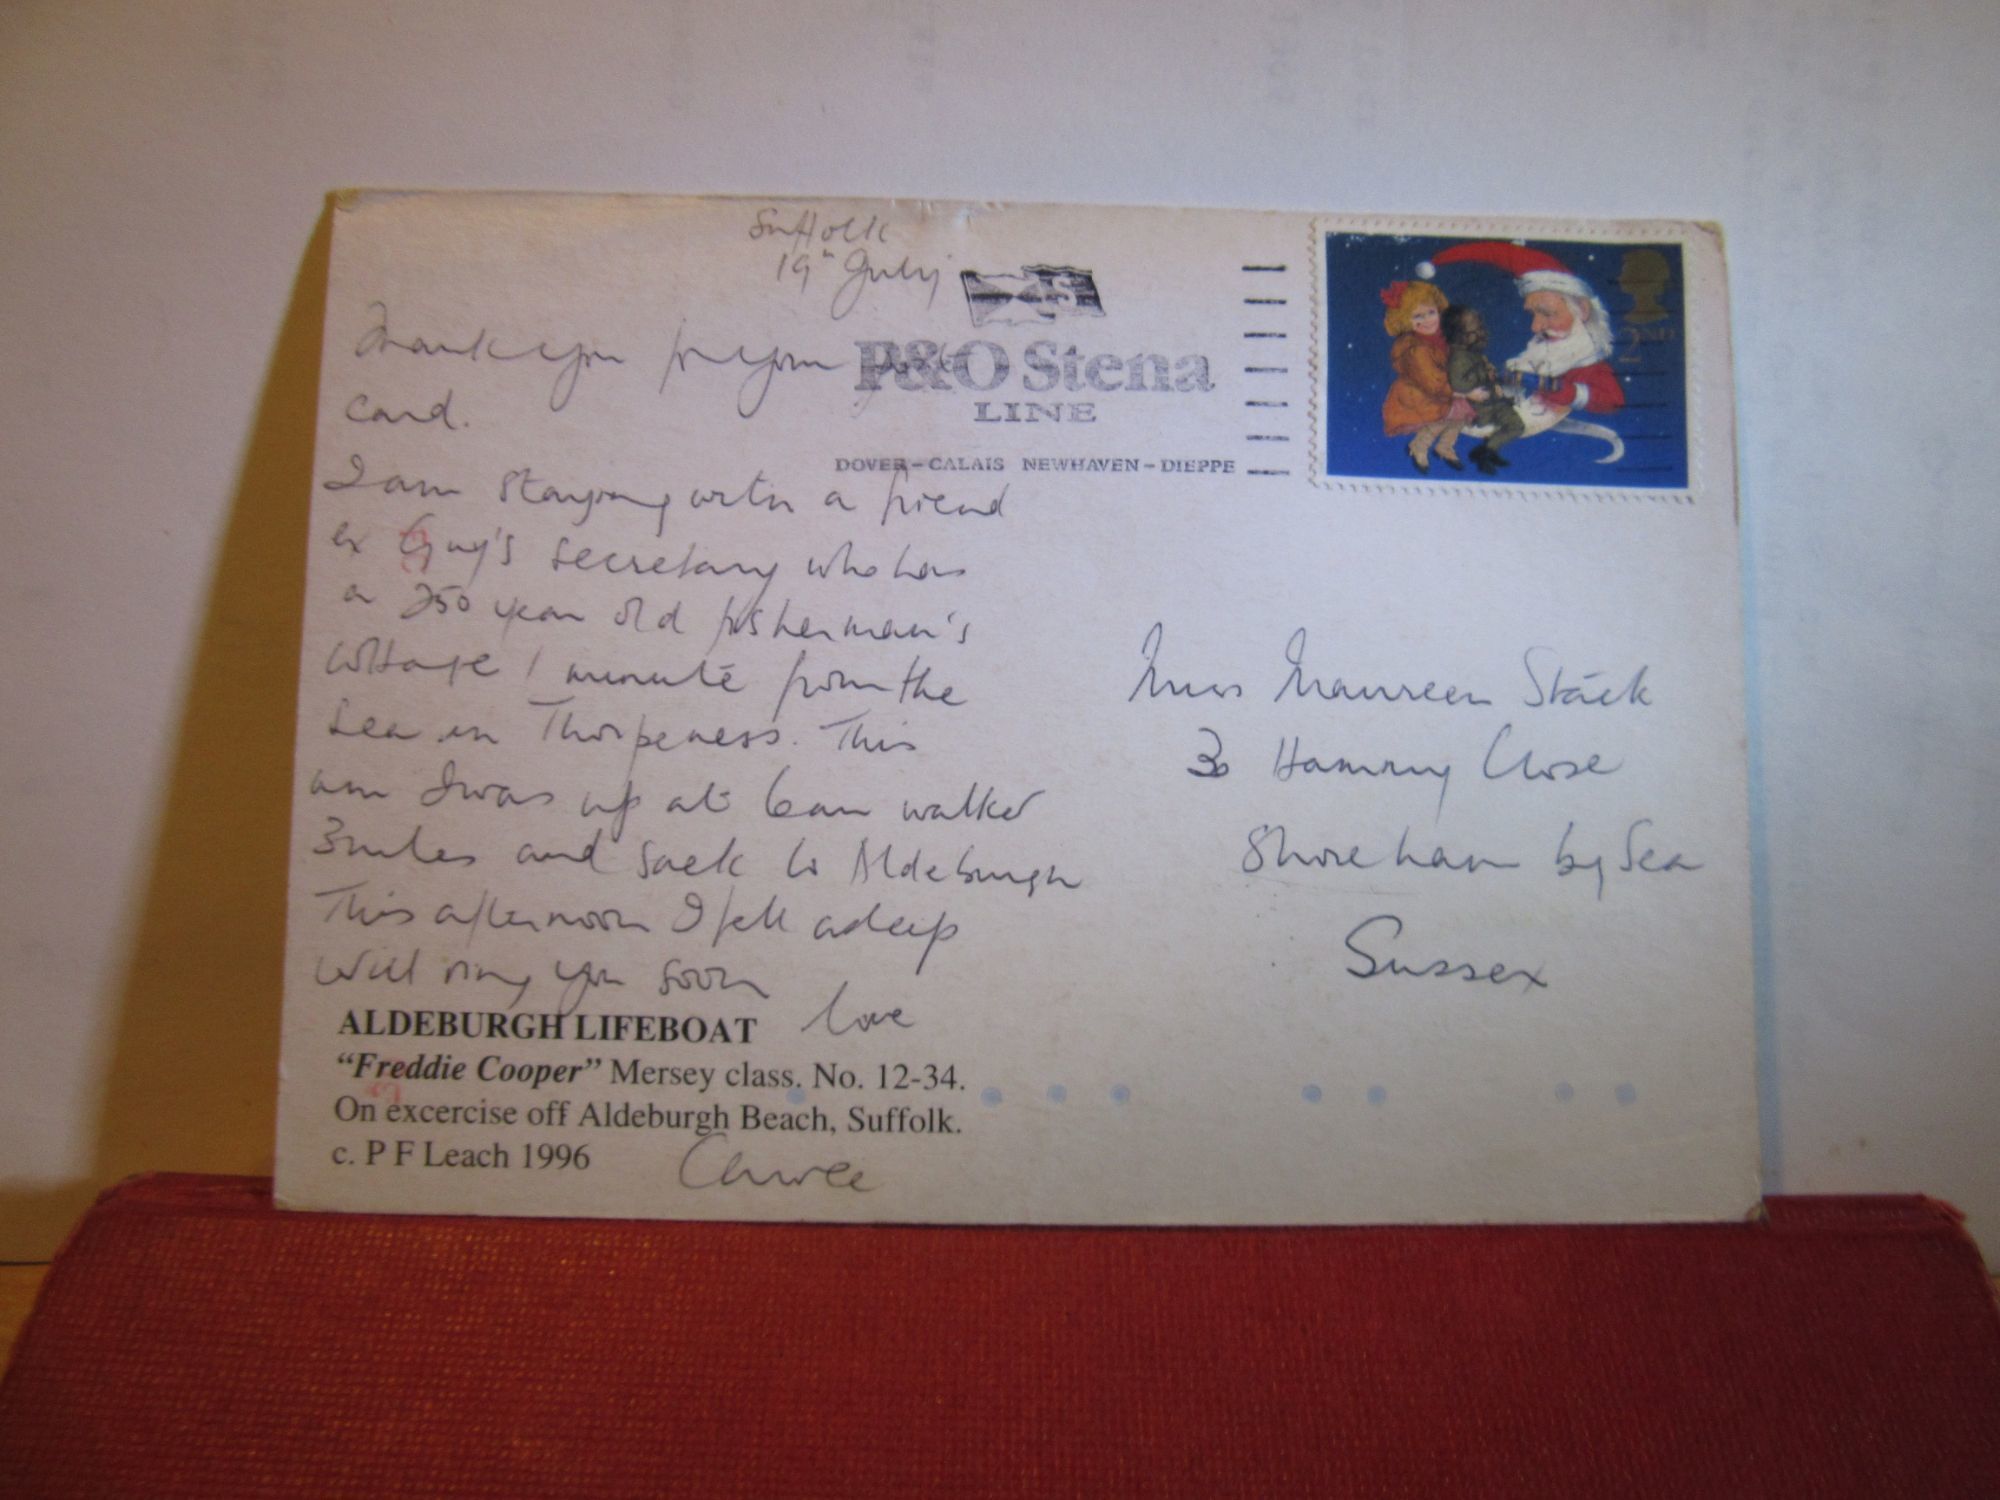 Suffolk
19th July
Thank you for your post
card.
I am staying with a friend
ex Guy's secretary who has
a 250 year old fisherman's
cottage 1 minute from the
sea in Thorpeness. This
am I was up at 6am walked
3 miles and back to Aldeburgh
This afternoon I fell asleep
Will ring you soon
love
ALDEBURGH LIFEBOAT
“Freddie Cooper” Mersey class. No. 12-34.
On excercise off Aldeburgh Beach, Suffolk.
c. P F Leach 1996
P&O Stena
LINE
DOVER-CALAIS NEWHAVEN-DIEPPE
2ND
Miss Maureen Stack
Close
Shoreham by Sea
Sussex